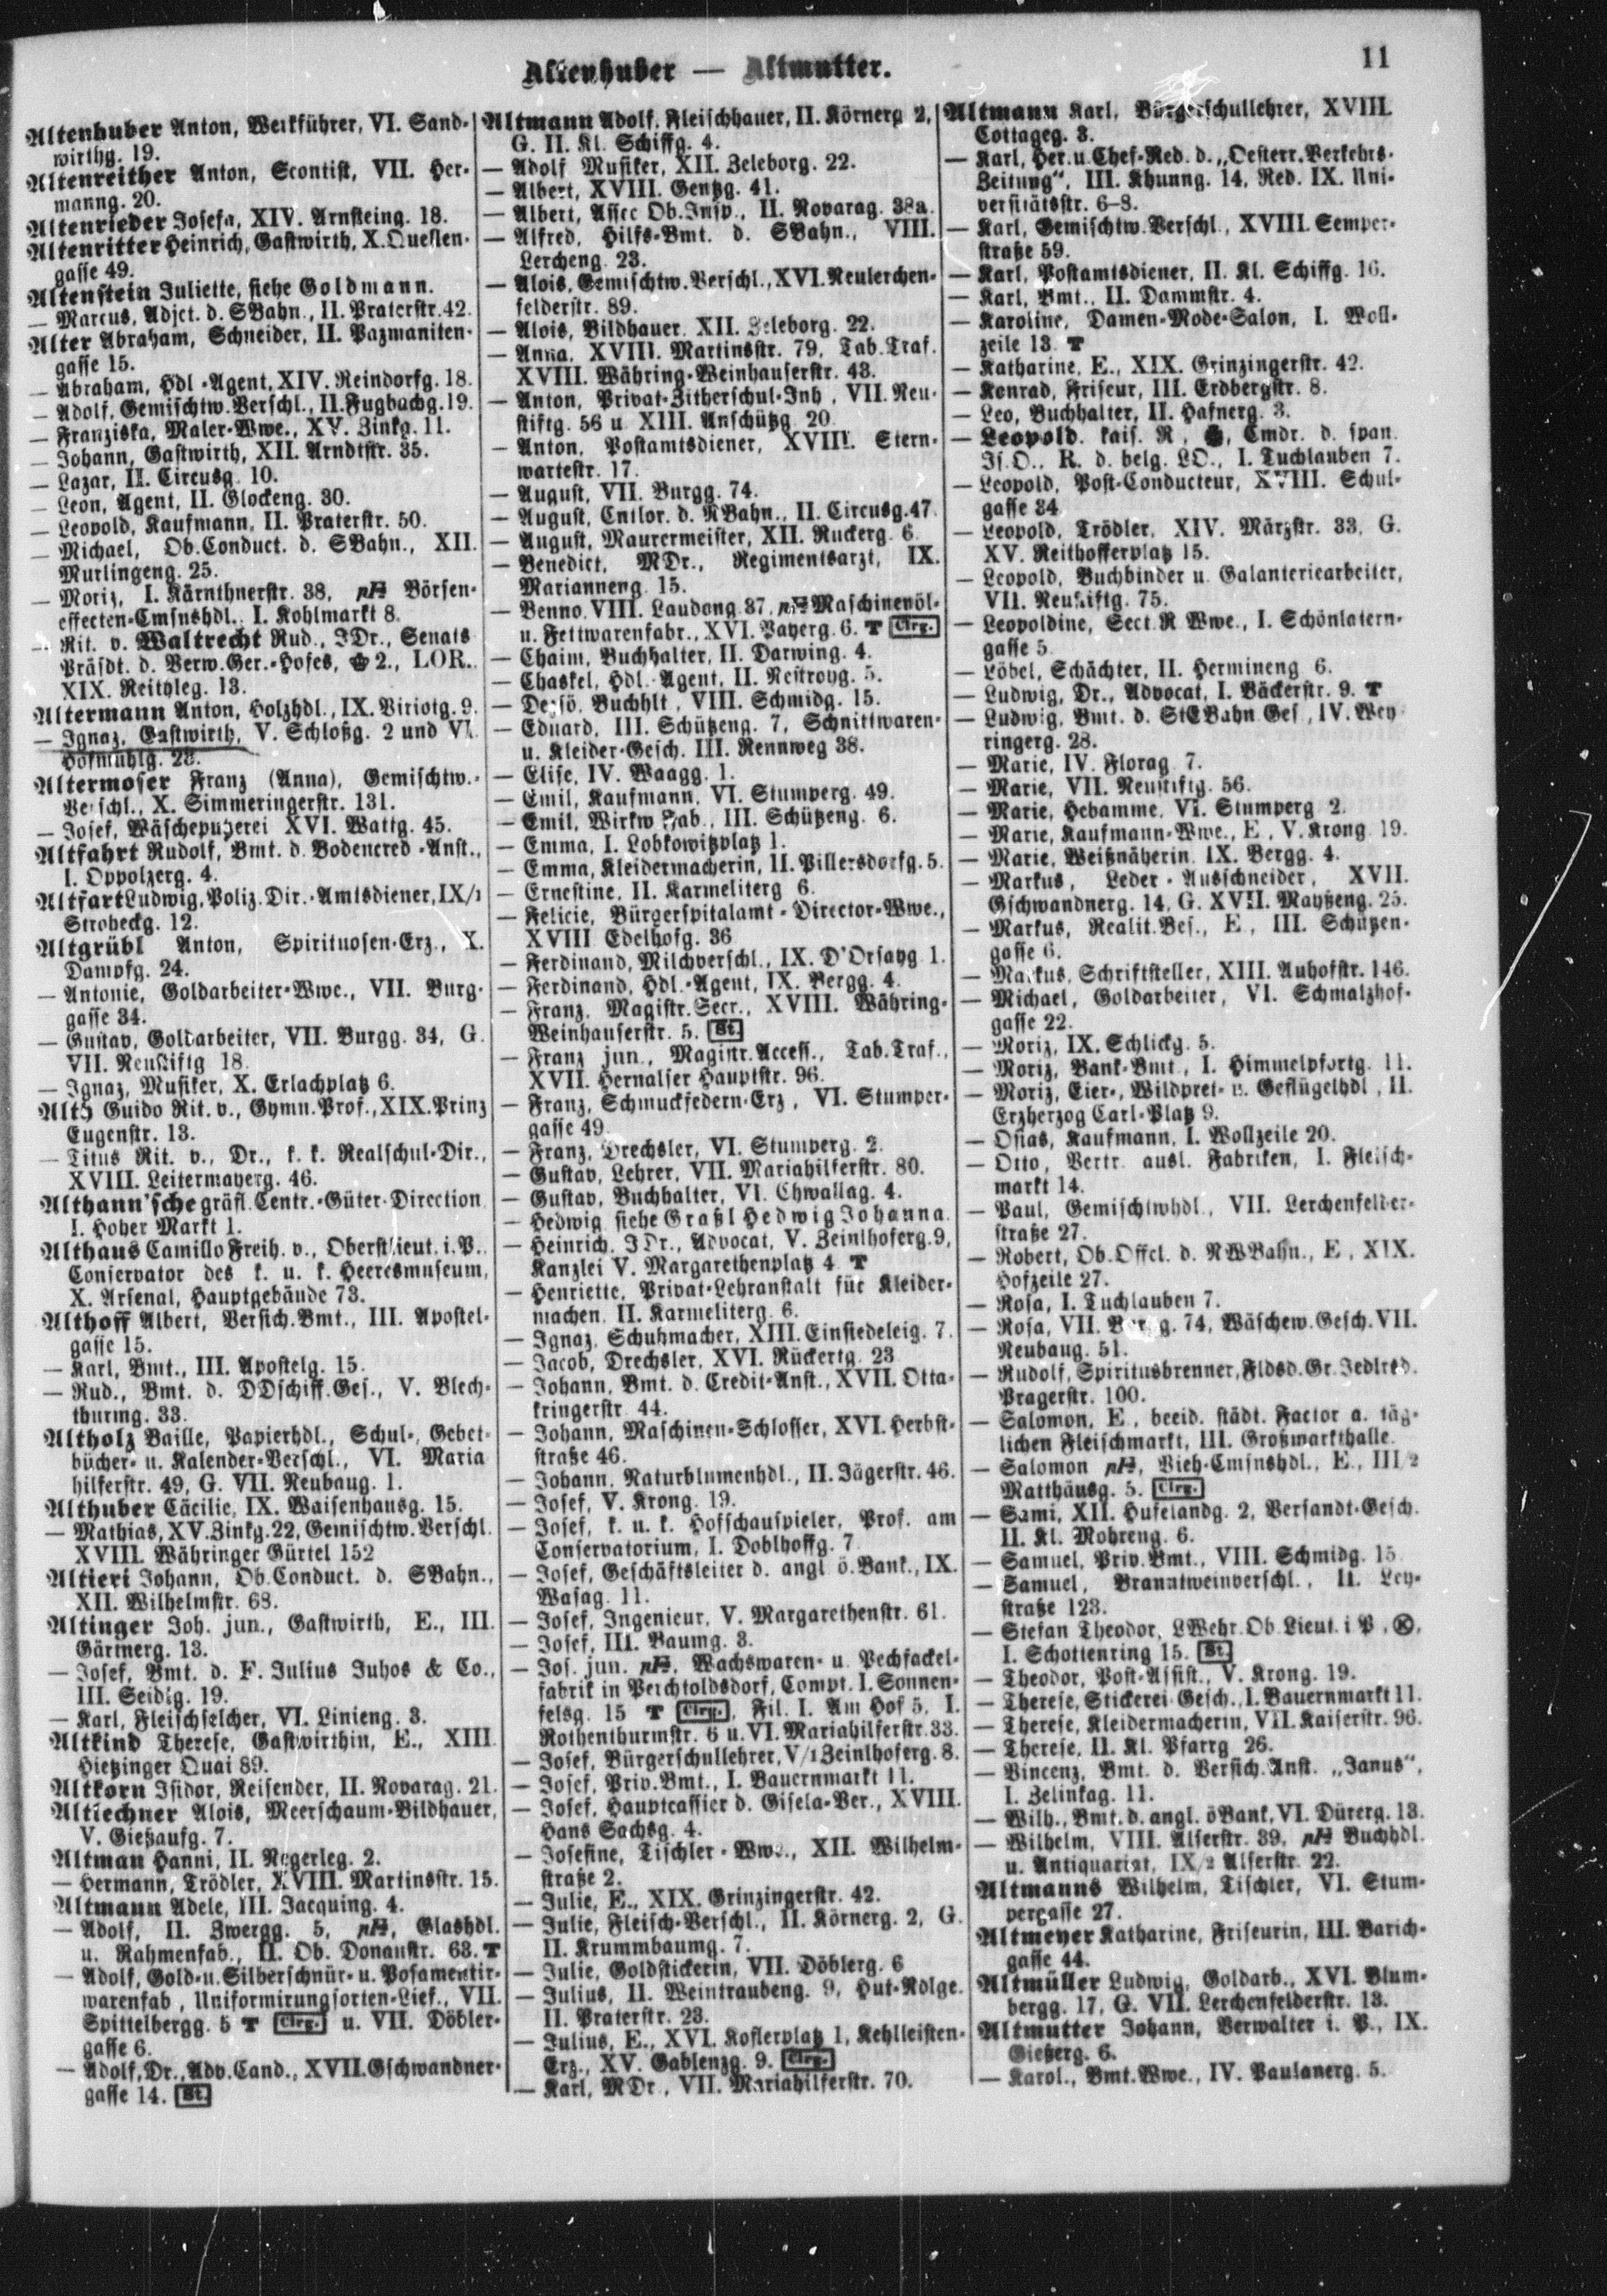 Altenhuber — Altmutter.
11
Altenhuber Anton, Werkführer, VI. Sand-
wirthg. 19.
Altenreither Anton, Scontist, VII. Her-
manng. 20.
Altenrieder Josefa, XIV. Arnsteing. 18.
Altenritter Heinrich, Gastwirth, X. Quellen-
gasse 49.
Altenstein Juliette, siehe Goldmann.
— Marcus, Adjct. d. SBahn., II. Praterstr. 42.
Alter Abraham, Schneider, II. Pazmaniten-
gasse 15.
— Abraham, Hdl.-Agent, XIV. Reindorfg. 18.
— Adolf, Gemischtw. Verschl., II. Fugbachg. 19.
— Franziska, Maler-Wwe., XV. Zinkg. 11.
— Johann, Gastwirth, XII. Arndtstr. 35.
— Lazar, II. Circusg. 10.
— Leon, Agent, II. Glockeng. 30.
— Leopold, Kaufmann, II. Praterstr. 50.
— Michael, Ob.Conduct. d. SBahn., XII.
Murlingeng. 25.
— Moriz, I. Kärnthnerstr. 38, pH Börsen-
effecten-Cmsnshdl., I. Kohlmarkt 8.
— Rit. v. Waltrecht Rud., JDr., Senats
Präsdt. d. Verw.Ger.-Hofes, 2., LOR..
XIX. Reithleg. 13.
Altermann Anton, Holzhdl., IX. Viriotg. 9.
— Ignaz, Gastwirth, V. Schloßg. 2 und VI.
Hofmühlg. 23.
Altermoser Franz (Anna), Gemischtw.-
Verschl., X. Simmeringerstr. 131.
— Josef, Wäscheputzerei XVI. Wattg. 45.
Altfahrt Rudolf, Bmt. d. Bodencred.-Anst.,
I. Oppolzerg. 4.
Altfart Ludwig, Poliz.Dir.-Amtsdiener, IX/1
Strobeckg. 12.
Altgrübl Anton, Spirituosen-Erz., X.
Dampfg. 24.
— Antonie, Goldarbeiter-Wwe., VII. Burg-
gasse 34.
— Gustav, Goldarbeiter, VII. Burgg. 34, G.
VII. Neustiftg 18.
— Ignaz, Musiker, X. Erlachplatz 6.
Alth Guido Rit. v., Gymn.Prof., XIX. Prinz
Eugenstr. 13.
— Titus Rit. v., Dr., k. k. Realschul-Dir.,
XVIII. Leitermayerg. 46.
Althann'sche gräfl. Centr.-Güter-Direction
I. Hoher Markt 1.
Althaus Camillo Freih. v., Oberstlieut. i. P.,
Conservator des k. u. k. Heeresmuseum,
X. Arsenal, Hauptgebäude 73.
Althoff Albert, Versich.Bmt., III. Apostel-
gasse 15.
— Karl, Bmt., III. Apostelg. 15.
— Rud., Bmt. d. DDschiff.Ges., V. Blech-
thurmg. 33.
Altholz Baille, Papierhdl., Schul-, Gebet-
bücher- u. Kalender-Verschl., VI. Maria
hilferstr. 49, G. VII. Neubaug. 1.
Althuber Cäcilie, IX. Waisenhausg. 15.
— Mathias, XV. Zinkg. 22, Gemischtw. Verschl.
XVIII. Währinger Gürtel 152
Altieri Johann, Ob.Conduct. d. SBahn.,
XII. Wilhelmstr. 68.
Altinger Joh. jun., Gastwirth, E., III.
Gärtnerg. 13.
— Josef, Bmt. d. F. Julius Juhos & Co.,
III. Seidlg. 19.
— Karl, Fleischselcher, VI. Linieng. 3.
Altkind Therese, Gastwirthin, E., XIII.
Hietzinger Quai 89.
Altkorn Isidor, Reisender, II. Novarag. 21.
Altlechner Alois, Meerschaum-Bildhauer,
V. Gießaufg. 7.
Altman Hanni, II. Negerleg. 2.
— Hermann, Trödler, XVIII. Martinsstr. 15.
Altmann Adele, III. Jacquing. 4.
— Adolf, II. Zwergg. 5, pH, Glashdl.
u. Rahmenfab., II. Ob. Donaustr. 63. T
— Adolf, Gold- u. Silberschnür- u. Posamentir-
warenfab., Uniformirungsorten-Lief., VII.
Spittelbergg. 5 T Clrg. u. VII. Döbler-
gasse 6.
— Adolf, Dr., Adv. Cand., XVII. Gschwandner-
gasse 14. St.
Altmann Adolf, Fleischhauer, II. Körnerg 2,
G. II. Kl. Schiffg. 4.
— Adolf Musiker, XII. Zeleborg. 22.
— Albert, XVIII. Gentzg. 41.
— Albert, Assec Ob.Insp., II. Novarag. 38a.
— Alfred, Hilfs-Bmt. d. SBahn., VIII.
Lercheng. 23.
— Alois, Gemischtw. Verschl., XVI. Neulerchen-
felderstr. 89.
— Alois, Bildhauer, XII. Zeleborg. 22.
— Anna, XVIII. Martinsstr. 79, Tab.Traf.
XVIII. Währing-Weinhauserstr. 43.
— Anton, Privat-Zitherschul-Inh., VII. Neu-
stiftg. 56 u. XIII. Anschützg. 20.
— Anton, Postamtsdiener, XVIII. Stern-
wartestr. 17.
— August, VII. Burgg. 74.
— August, Cntlor. d. NBahn., II. Circusg. 47.
— August, Maurermeister, XII. Ruckerg. 6.
— Benedict, MDr., Regimentsarzt, IX.
Marianneng. 15.
— Benno, VIII. Laudong. 37, pH Maschinenöl-
u. Fettwarenfabr., XVI. Payerg. 6. T Clrg.
— Chaim, Buchhalter, II. Darwing. 4.
— Chaskel, Hdl.-Agent, II. Nestroyg. 5.
— Desö, Buchhlt., VIII. Schmidg. 15.
— Eduard, III. Schützeng. 7, Schnittwaren-
u. Kleider-Gesch. III. Rennweg 38.
— Elise, IV. Waagg. 1.
— Emil, Kaufmann, VI. Stumperg. 49.
— Emil, Wirkw Fab., III. Schützeng. 6.
— Emma, I. Lobkowitzplatz 1.
— Emma, Kleidermacherin, II. Pillersdorfg. 5.
— Ernestine, II. Karmeliterg 6.
— Felicie, Bürgerspitalamt-Director-Wwe.,
XVIII Edelhofg. 36
— Ferdinand, Milchverschl., IX. D'Orsayg 1.
— Ferdinand, Hdl.-Agent, IX. Bergg. 4.
— Franz, Magistr. Secr., XVIII. Währing-
Weinhauserstr. 5. St.
— Franz jun., Magistr. Access., Tab.Traf.,
XVII. Hernalser Hauptstr. 96.
— Franz, Schmuckfedern-Erz., VI. Stumper-
gasse 49.
— Franz, Drechsler, VI. Stumperg. 2.
— Gustav, Lehrer, VII. Mariahilferstr. 80.
— Gustav, Buchhalter, VI. Chwallag. 4.
— Hedwig siehe Graßl Hedwig Johanna.
— Heinrich, JDr., Advocat, V. Zeinlhoferg. 9,
Kanzlei V. Margarethenplatz 4 T
— Henriette, Privat-Lehranstalt für Kleider-
machen, II. Karmeliterg. 6.
— Ignaz, Schuhmacher, XIII. Einsiedeleig. 7.
— Jacob, Drechsler, XVI. Rückertg. 23
— Johann, Bmt. d. Credit-Anst., XVII. Otta-
kringerstr. 44.
— Johann, Maschinen-Schlosser, XVI. Herbst-
straße 46.
— Johann, Naturblumenhdl., II. Jägerstr. 46.
— Josef, V. Krong. 19.
— Josef, k. u. k. Hofschauspieler, Prof. am
Conservatorium, I. Doblhoffg. 7
— Josef, Geschäftsleiter d. angl ö. Bank., IX.
Wasag. 11.
— Josef, Ingenieur, V. Margarethenstr. 61.
— Josef, III. Baumg. 3.
— Jos. jun. pH, Wachswaren- u. Pechfackel-
fabrik in Perchtoldsdorf, Compt. I. Sonnen-
felsg. 15 T Clrg., Fil. I. Am Hof 5, I.
Rothenthurmstr. 6 u. VI. Mariahilferstr. 33.
— Josef, Bürgerschullehrer, V/1 Zeinlhoferg. 8.
— Josef, Priv.Bmt., I. Bauernmarkt 11.
— Josef, Hauptcassier d. Gisela-Ver., XVIII.
Hans Sachsg. 4.
— Josefine, Tischler-Wwe., XII. Wilhelm-
straße 2.
— Julie, E., XIX. Grinzingerstr. 42.
— Julie, Fleisch-Verschl., II. Körnerg. 2, G.
II. Krummbaumg. 7.
— Julie, Goldstickerin, VII. Döblerg. 6
— Julius, II. Weintraubeng. 9, Hut-Ndlge.
II. Praterstr. 23.
— Julius, E., XVI. Koflerplatz 1, Kehlleisten-
Erz., XV. Gablenzg. 9. Clrg.
— Karl, MDr., VII. Mariahilferstr. 70.
Altmann Karl, Bürgerschullehrer, XVIII.
Cottageg. 3.
— Karl, Her. u. Chef-Red. d. „Oesterr. Verkehrs-
Zeitung“, III. Khunng. 14, Red. IX. Uni-
versitätsstr. 6–8.
— Karl, Gemischtw. Verschl., XVIII. Semper-
straße 59.
— Karl, Postamtsdiener, II. Kl. Schiffg. 16.
— Karl, Bmt., II. Dammstr. 4.
— Karoline, Damen-Mode-Salon, I. Woll-
zeile 13. T
— Katharine, E., XIX. Grinzingerstr. 42.
— Konrad, Friseur, III. Erdbergstr. 8.
— Leo, Buchhalter, II. Hafnerg. 3.
— Leopold, kais. R., Cmdr. d. span.
Is.O., R. d. belg. LO., I. Tuchlauben 7.
— Leopold, Post-Conducteur, XVIII. Schul-
gasse 34
— Leopold, Trödler, XIV. Märzstr. 33, G.
XV. Reithofferplatz 15.
— Leopold, Buchbinder u. Galanteriearbeiter,
VII. Neustiftg. 75.
— Leopoldine, Sect.R Wwe., I. Schönlatern-
gasse 5.
— Löbel, Schächter, II. Hermineng 6.
— Ludwig, Dr., Advocat, I. Bäckerstr. 9. T
— Ludwig, Bmt. d. StEBahn Ges., IV. Wey
ringerg. 28.
— Marie, IV. Florag 7.
— Marie, VII. Neustiftg. 56.
— Marie, Hebamme, VI. Stumperg 2.
— Marie, Kaufmann-Wwe., E., V. Krong. 19.
— Marie, Weißnäherin, IX. Bergg. 4.
— Markus, Leder-Ausschneider, XVII.
Gschwandnerg. 14, G. XVII. Mayßeng. 25.
— Markus, Realit.Bes., E., III. Schützen-
gasse 6.
— Markus, Schriftsteller, XIII. Auhofstr. 146.
— Michael, Goldarbeiter, VI. Schmalzhof-
gasse 22.
— Moriz, IX. Schlickg. 5.
— Moriz, Bank-Bmt., I. Himmelpfortg. 11.
— Moriz, Eier-, Wildpret- u. Geflügelhdl., II.
Erzherzog Carl-Platz 9.
— Osias, Kaufmann, I. Wollzeile 20.
— Otto, Vertr. ausl. Fabriken, I. Fleisch-
markt 14.
— Paul, Gemischtwhdl., VII. Lerchenfelder-
straße 27.
— Robert, Ob.Offcl. d. NWBahn., E., XIX.
Hofzeile 27.
— Rosa, I. Tuchlauben 7.
— Rosa, VII. Burgg. 74, Wäschew.Gesch. VII.
Neubaug. 51.
— Rudolf, Spiritusbrenner, Fldsd. Gr. Jedlrsd.
Pragerstr. 100.
— Salomon, E., beeid. städt. Factor a. täg-
lichen Fleischmarkt, III. Großmarkthalle.
— Salomon pH, Vieh-Cmsnshdl., E., III/2
Matthäusg. 5. Clrg.
— Sami, XII. Hufelandg. 2, Versandt-Gesch.
II. Kl. Mohreng. 6.
— Samuel, Priv.Bmt., VIII. Schmidg. 15
— Samuel, Branntweinverschl., II. Ley-
straße 123.
— Stefan Theodor, LWehr.Ob.Lieut. i P., K,
I. Schottenring 15. St.
— Theodor, Post-Assist., V. Krong. 19.
— Therese, Stickerei Gesch., I. Bauernmarkt 11.
— Therese, Kleidermacherin, VII. Kaiserstr. 96.
— Therese, II. Kl. Pfarrg 26.
— Vincenz, Bmt. d. Versich.Anst. „Janus“,
I. Zelinkag. 11.
— Wilh., Bmt. d. angl. öBank, VI. Dürerg. 13.
— Wilhelm, VIII. Alserstr. 39, pH Buchhdl.
u. Antiquariat, IX/2 Alserstr. 22.
Altmanns Wilhelm, Tischler, VI. Stum-
pergasse 27.
Altmeyer Katharine, Friseurin, III. Barich-
gasse 44.
Altmüller Ludwig, Goldarb., XVI. Blum-
bergg. 17, G. VII. Lerchenfelderstr. 13.
Altmutter Johann, Verwalter i. P., IX.
Gießerg. 6.
— Karol., Bmt.Wwe., IV. Paulanerg. 5.